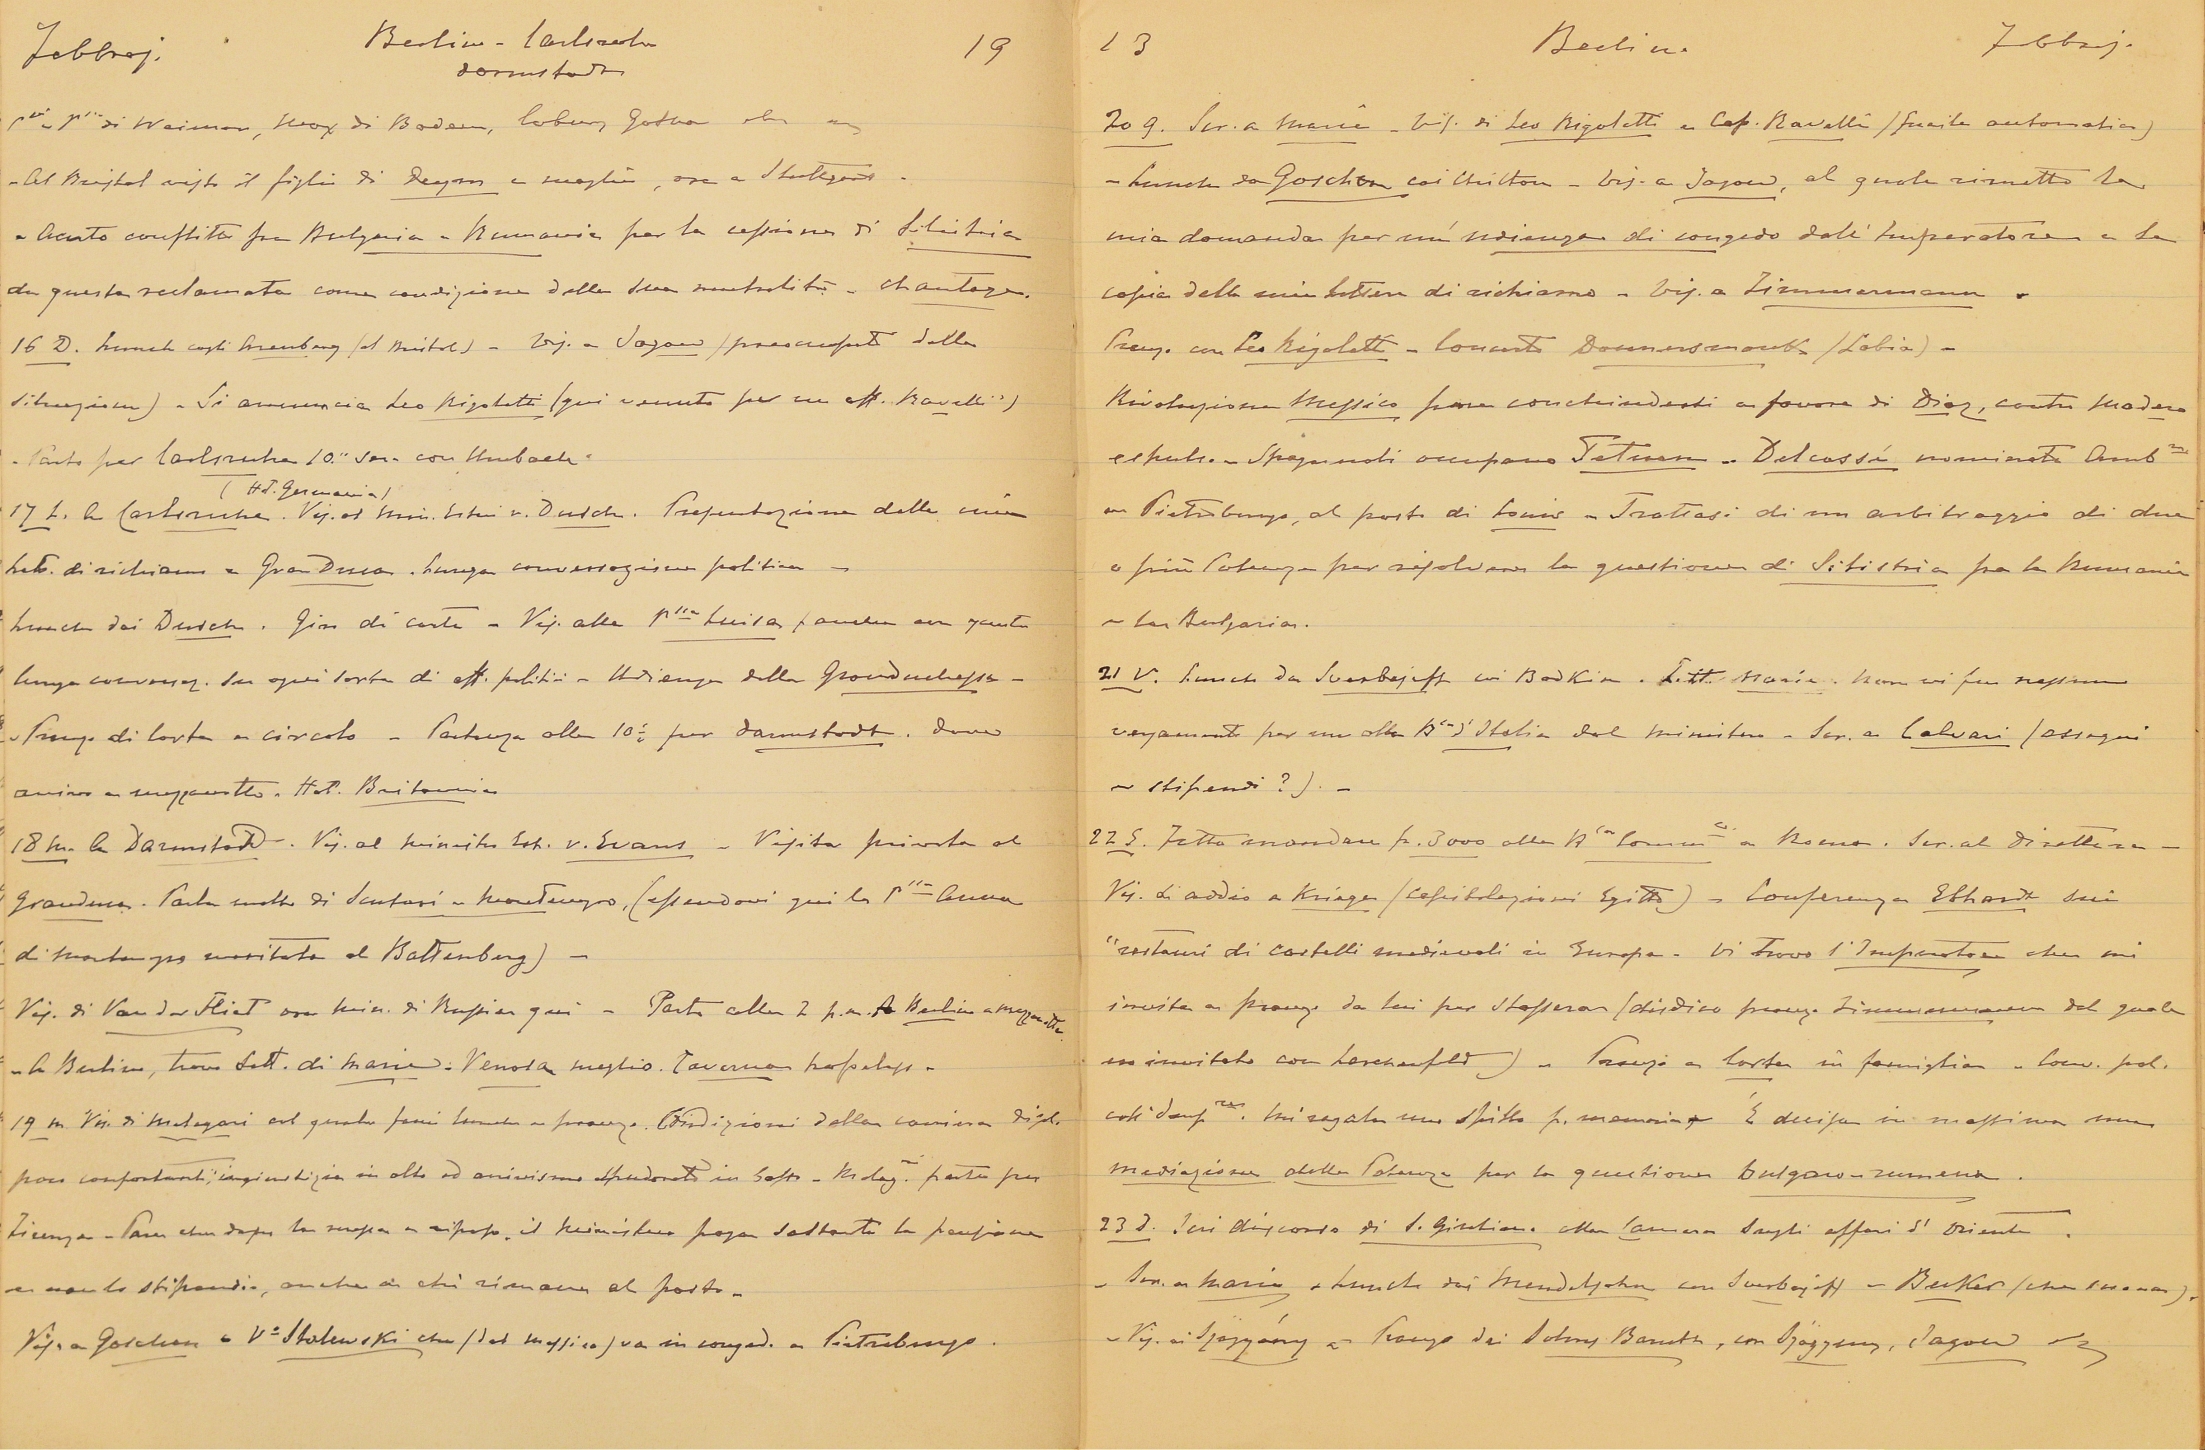 Febbraj. Berlino - Carlsruhe 19
Darmstadt
Pre e Pssa di Weimar, Max di Baden, Coburg Gotha
- Al Bristol visto il figlio di e moglie, ora a Stuttgart -
- Acuto conflitto fra Bulgaria e Rumania per la cessione di Silistria
da questa reclamata come condizione della sua neutralità - chantage.
16 D. Lunch cogli Arenberg (al Bristol) - Vis. a Jagow (preoccupato della
situazione) - Si annuncia Leo Rigoletti (qui venuto per un aff. Ravelli)
- Parto per Carlsruhe 10 ser. con
(Hot. Germania)
17 L. A Carlsruhe. Vis. al Min. Esteri v. Dusch. Presentazione delle mie
lett. di richiamo a GranDuca. Lunga conversazione politica -
Lunch dai Dusch. Giro di carte - Vis. alla Pssa Luisa, anche con questa
lunga conversaz. su ogni sorta di aff. politici - Udienza della Granduchessa -
- Pranzo di Corte e circolo - Partenza alle 10 per Darmstadt. dove
arrivo a mezzanotte. Hot. Britannia
18 M. A Darmstadt -. Vis. al ministro Est. v. Ewans - Visita privata al
Granduca. Parla molto di Scutari e Montenegro, (essendovi qui la Pssa Anna
di Montenegro maritata al Battenberg) -
Vis. di Van der Fliet ora min. di Russia qui - Parto alle 2 p.m. A Berlino a mezzanotte.
- A Berlino, trovo lett. di Maria: Venosa meglio. Taverna
19 M Vis. di Melegari col quale feci lunch e pranzo. Condizioni della carriera dipl.
poco confortanti; ingiustizia in alto ed arrivismo spudorato in basso - Meleg. parte per
Firenze - Pare che dopo la messa a riposo, il ministero paga soltanto la pensione
e non lo stipendio, anche a chi rimane al posto -
Vis. a Goschen e Va Stalewski che (dal Messico) va in congedo a Pietroburgo.
13 Berlino Febbraj.
20 G. Scr. a Maria - Vis. di Leo Rigoletti e Cap. Ravelli (fucile automatico)
- Lunch da Goschen coi Chilton - Vis. a Jagow, al quale rimetto la
mia domanda per un'udienza di congedo dall'Imperatore e la
copia delle mie lettere di richiamo - Vis. a Zimmermann -
Pranzo con Leo Rigoletti - Concerto Donnersmark (Labia) -
Rivoluzione Messico pare conchiudersi a favore di Diaz, contro Madero
espulso - Spagnuoli occupano Tetuan - Delcassé nominato Ambre
a Pietroburgo, al posto di Louis - Trattasi di un arbitraggio di due
o più Potenze per risolvere la questione di Silistria fra la Rumania
e la Bulgaria.
21 V. Lunch da Sverbejeff coi Bodkin. Lett. Maria. Non vi fu nessun
versamento per me alla Bca d'Italia dal ministero - Scr. a Calvari (assegni
e stipendi?). -
22 S. Fatto mandare fr. 3000 alla Bca Commle a Roma. Scr. al direttore -
Vis. di addio a Kriege (capitolazioni Egitto) - Conferenza Ebhardt sui
"restauri di castelli medievali in Europa - Vi trovo l'Imperatore che mi
invita a pranzo da lui per stassera (disdico pranzo Zimmermann dal quale
ero invitato con Lerchenfeld) - Pranzo a Corte in famiglia - Conv. pol.
coll'Impre. Mi regala uno spillo p. memoria. È decisa in massima una
mediazione delle Potenze per la questione bulgaro-rumena.
23 D. Ieri discorso di S. Giuliano alla Camera sugli affari d'Oriente.
- Scr. a Maria - Lunch dai Mendelsohn con Sverbejeff - Becker (che suona).
- Vis. ai Szögyény - Pranzo dai Solms Baruth, con Szögyeny, Jagow